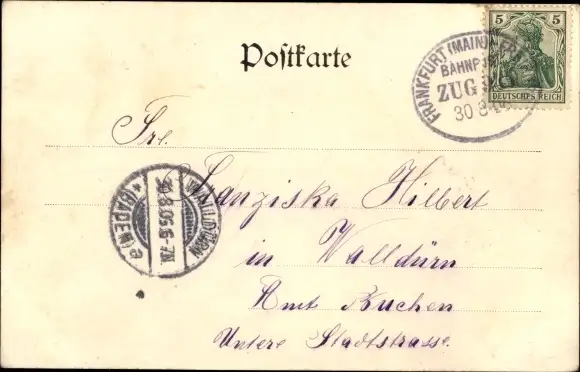 Postkarte
5 5
DEUTSCHES REICH
FRANKFURT (MAIN)
BAHNPOST
ZUG
30 8
Frl.
Franziska Hilbert
in Walldürn
Amt Buchen
Untere Stadtstrasse.
WALLDÜRN
30.8.05.6-7N.
* (BADEN) a